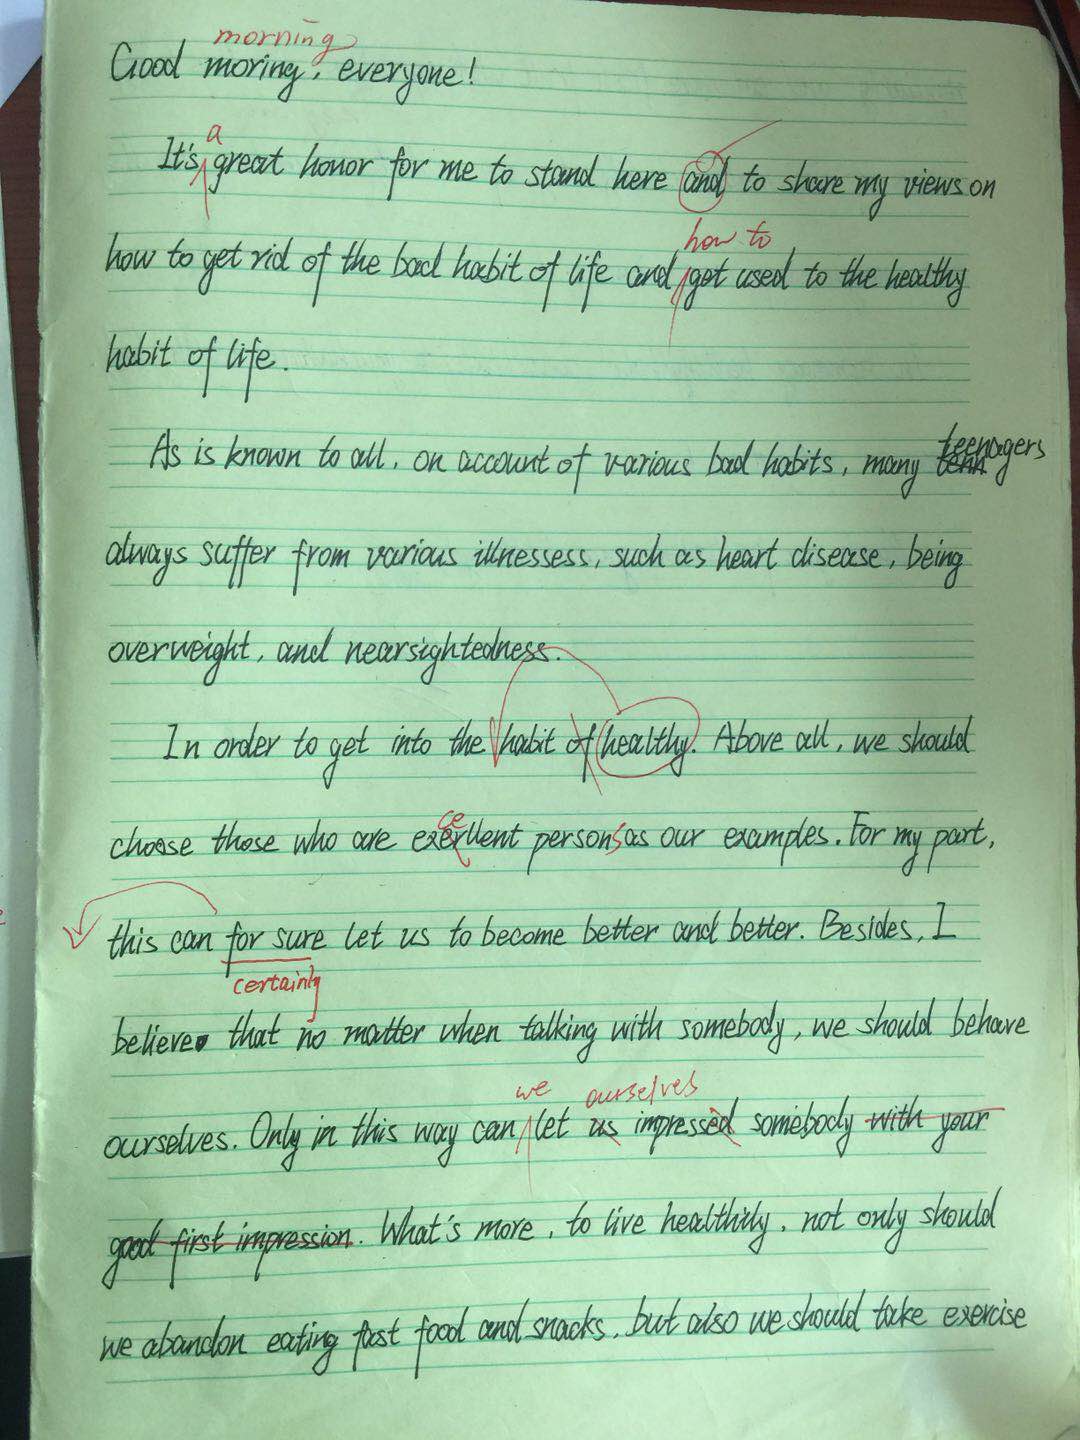 morning
Good moring, everyone!
a
It's great honor for me to stand here and to share my views on
how to
how to get rid of the bad habit of life and get used to the healthy
habit of life.
As is known to all, on account of various bad habits, many teenagers
always suffer from various illnessess, such as heart disease, being
overweight, and nearsightedness.
In order to get into the habit of healthy. Above all, we should
ce
choose those who are exerllent persons as our examples. For my part,
this can for sure let us to become better and better. Besides, I
certainly
believe that no matter when talking with somebody, we should behave
we ourselves
ourselves. Only in this way can let us impressed somebody with your
good first impression. What's more, to live healthily, not only should
we abandon eating fast food and snacks, but also we should take exercise